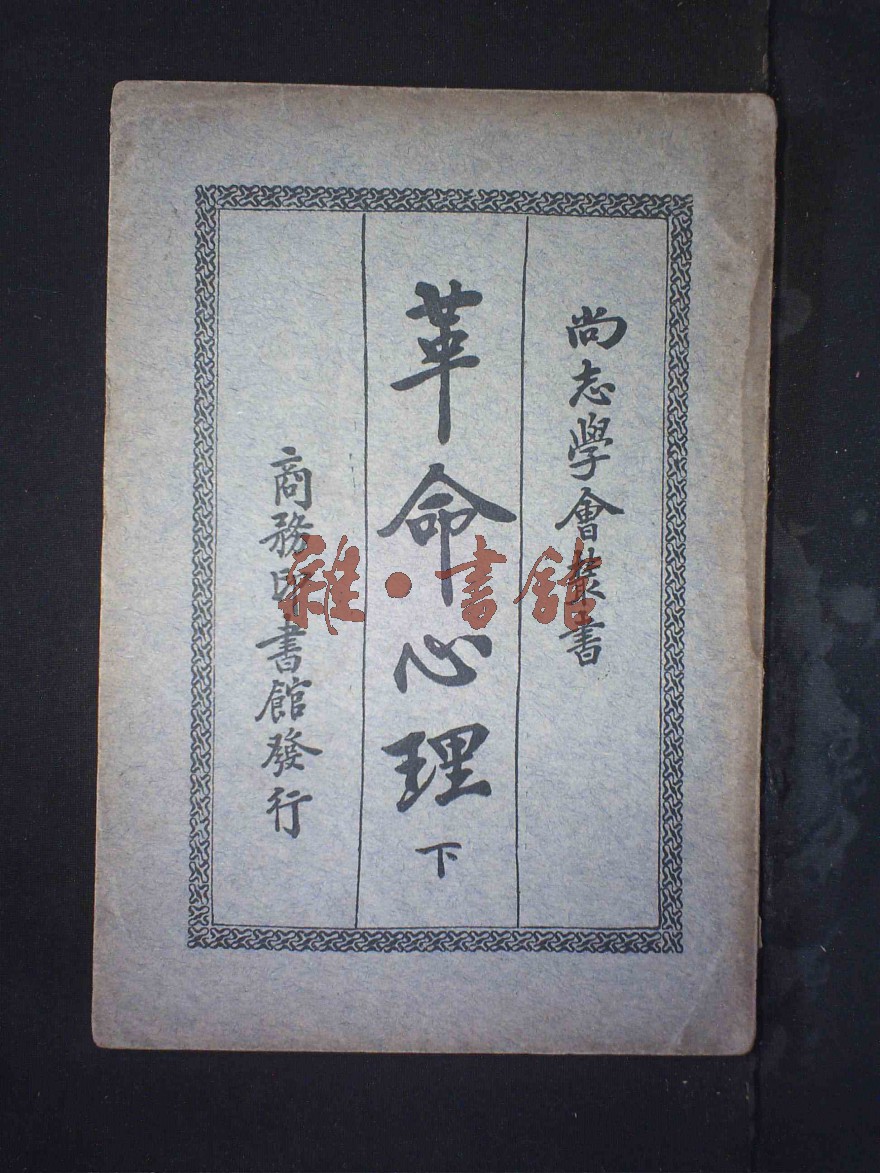 尚志學會叢書
革命心理下
商務印書館發行
雜·書館